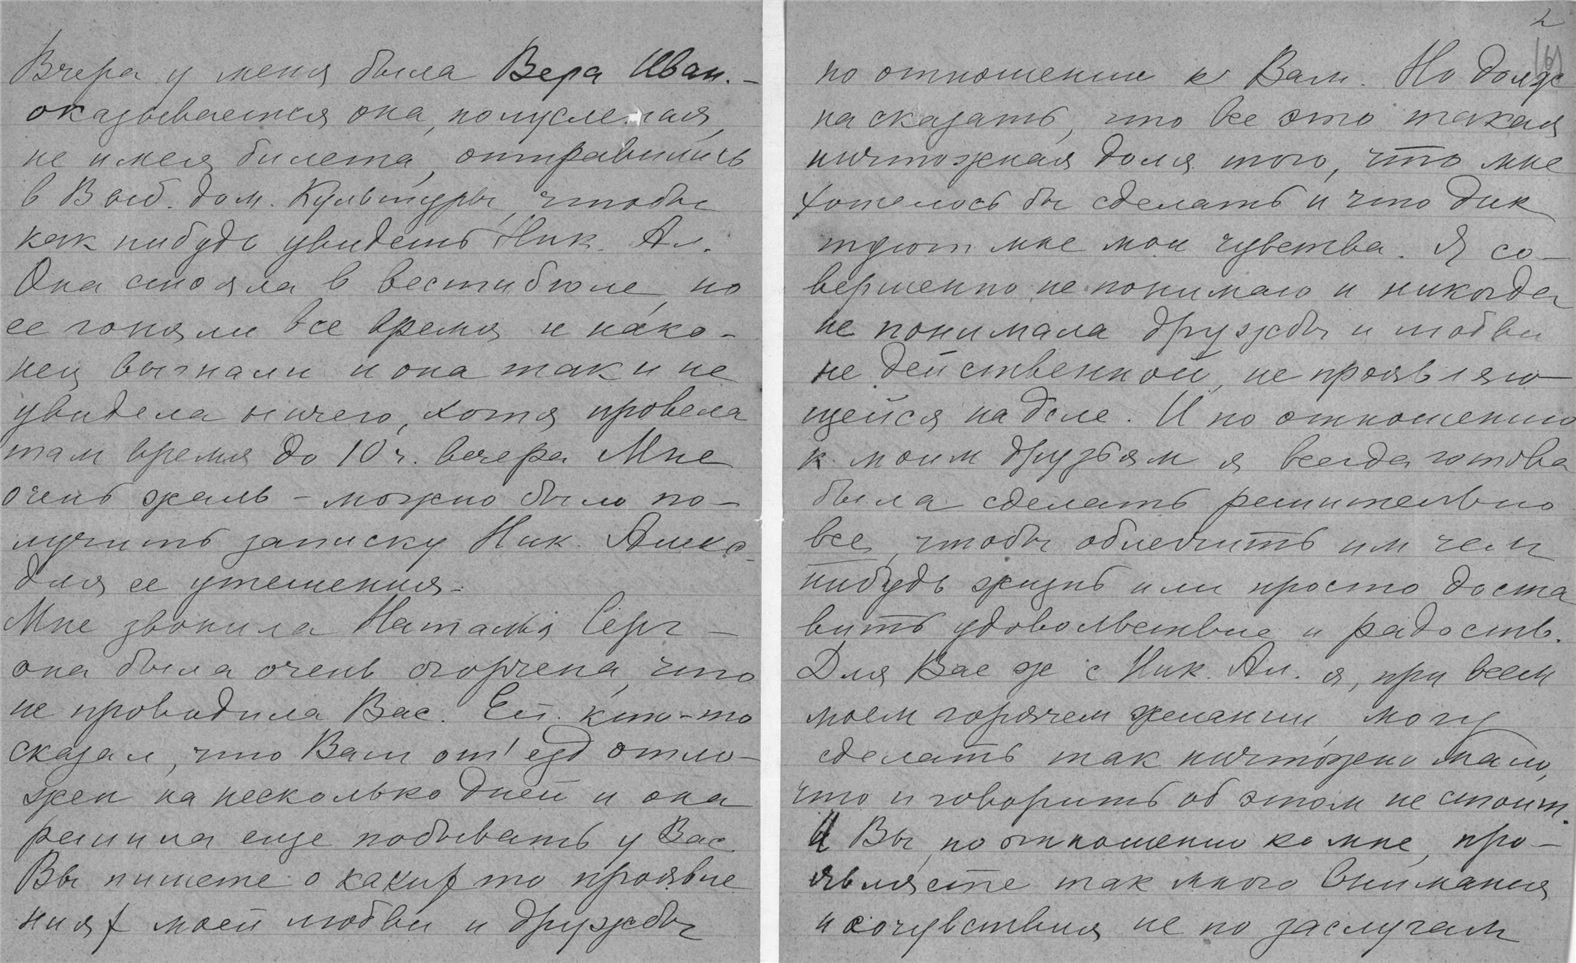 Вчера у меня была Вера Иван. –
оказывается она, полуслепая,
не имея билета, отправилась
в Выб. дом. Культуры, чтобы
как нибудь увидеть Ник. Ал.
Она стояла в вестибюле, но
ее гоняли все время и нако–
нец выгнали и она так и не
увидела ничего, хотя провела
там время до 10 ч. вечера Мне
очень жаль – можно было по–
лучить записку Ник. Алекс.
для ее утешения.
Мне звонила Наталья Серг –
она была очень огорчена, что
не проводила Вас. Ей кто-то
сказал, что Вам от'езд отло–
жен на несколько дней и она
решила еще побывать у Вас.
Вы пишете о каких то проявле
ниях моей любви и дружбы
2
по отношению к Вам. Но долж
на сказать, что все это такая
ничтожная доля того, что мне
хотелось бы сделать и что дик
туют мне мои чувства. Я со–
вершенно не понимаю и никогда
не понимала дружбы и любви
не действенной, не проявляю–
щейся на деле. И по отношению
к моим друзьям я всегда готова
была сделать решительно
все, чтобы облегчить им чем
нибудь жизнь или просто доста
вить удовольствие и радость.
Для Вас ж с Ник. Ал. я, при всем
моем горячем желании, могу
сделать так ничтожно мало,
что и говорить об этом не стоит.
И Вы, по отношению ко мне, про–
являете так много внимания
и сочувствия не по заслугам